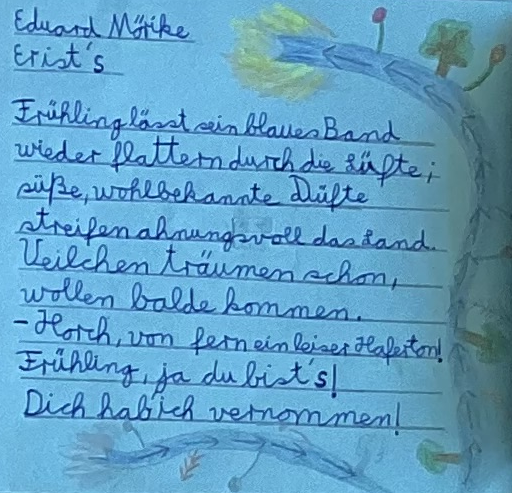 Eduard Mörike
Erist's
Frühling lässt sein blaues Band
wieder flattern durch die Lüfte;
süße, wohlbekannte Düfte
streifen ahnungsvoll das Land.
Veilchen träumen schon,
wollen balde kommen.
- Horch, von fern ein leiser Hafenton!
Frühling, ja du bist's!
Dich hab ich vernommen!